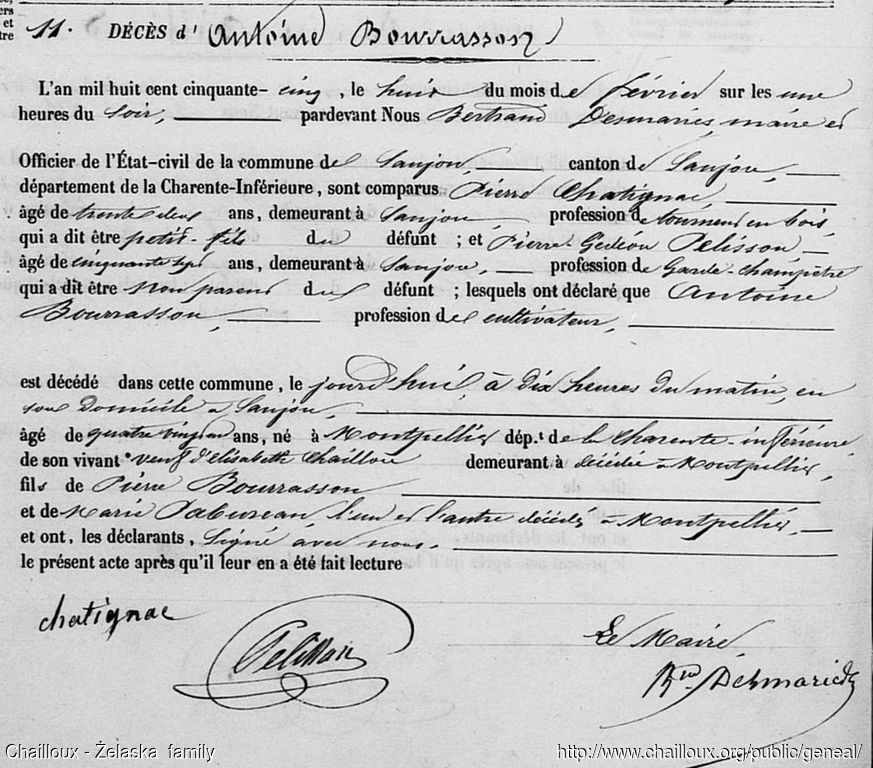 ers
et
tre
11. DÉCÈS d'Antoine Bourrasson
L'an mil huit cent cinquante-cinq, le huit du mois de février sur les une
heures du soir, pardevant Nous Bertrand Desmaries, maire et
Officier de l'État-civil de la commune de Saujon, canton de Saujon,
département de la Charente-Inférieure, sont comparus Pierre Chatignac,
âgé de trente deux ans, demeurant à Saujon profession de tourneur en bois,
qui a dit être petit-fils du défunt ; et Pierre-Gédéon Pelisson
âgé de cinquante sept ans, demeurant à Saujon, profession de Garde-champêtre
qui a dit être Non parent du défunt ; lesquels ont déclaré que Antoine
Bourrasson, profession de cultivateur,
est décédé dans cette commune, le jourd'hui, à dix heures du matin, en
son domicile à Saujon,
âgé de quatre vingt ans, né à Montpellier dép.t de la Charente-inférieure,
de son vivant veuf d'élisabeth Chaillou demeurant à décédée à Montpellier,
fils de Pierre Bourrasson
et de Marie l'un et l'autre décédés à Montpellier,
et ont, les déclarants, signé avec nous
le présent acte après qu'il leur en a été fait lecture
chatignac
Pelisson
Le Maire,
Bd Desmaries
Chailloux - Żelaska family
http://www.chailloux.org/public/geneal/